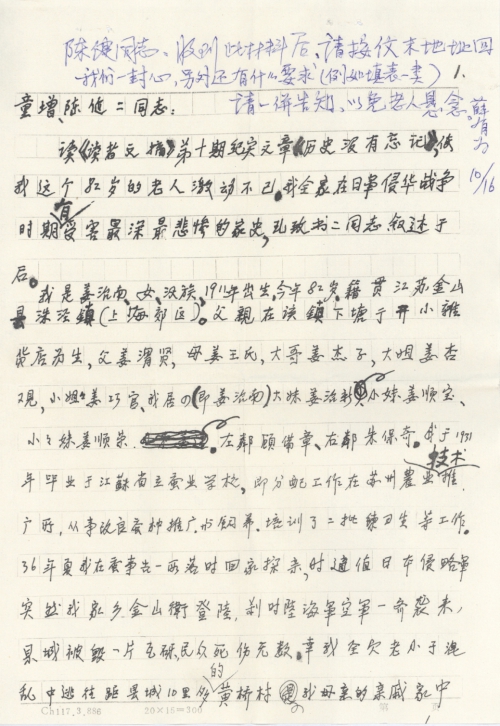 陈健同志：收到此材料后，请按信末地址回
我们一封心，另外还有什么要求（例如填表一类）1.
请一併告知，以免老人悬念。薛有为
10/16
童增、陈健二同志：
读《读者文摘》第十期纪实文章《历史没有忘记》，使
我这个82岁的老人激动不已。我全家在日軍侵华战争
时期有受害最深最悲惨的家史，兹致书二同志叙述于
后。
我是姜治南、女、汉族、1911年出生，今年82岁，籍贯江苏金山
县洙泾鎮（上海郊区）。父親在该鎮下塘于开小雜
货店为生，父姜渭贤，母姜王氏，大哥姜杰子，大姐姜杏
观，小姐姜巧官，我居四（即姜治南）大妹姜治新，小妹姜顺宝、
小小妹姜顺荣。左鄰顾備章、右鄰朱保奇。我于1931
年毕业于江蘇省立蚕业学校，即分配工作在苏州農业技术推
广所，从事改良蚕种推广和饲养、培训了二批練习生等工作。
36年夏我在蚕事告一段落时回家探亲，时逢值日本侵略軍
突然我家乡金山衛登陸，刹时陸海軍空軍一齐襲来，
县城被毁一片瓦砾，民众死伤无数，幸我全家老小于混
乱中逃往距县城10里多的黄桥村我母亲的亲戚家中
Ch117.3.886 20×15=300 第 页